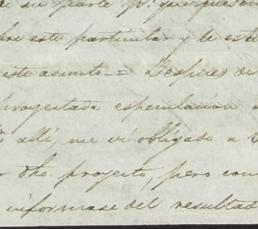 su parte p.r que
este particular y le
este asunto = Despues de
proyectada especulacion
allí, me vi obligado a
dho. proyecto, pero com
informase del resultad